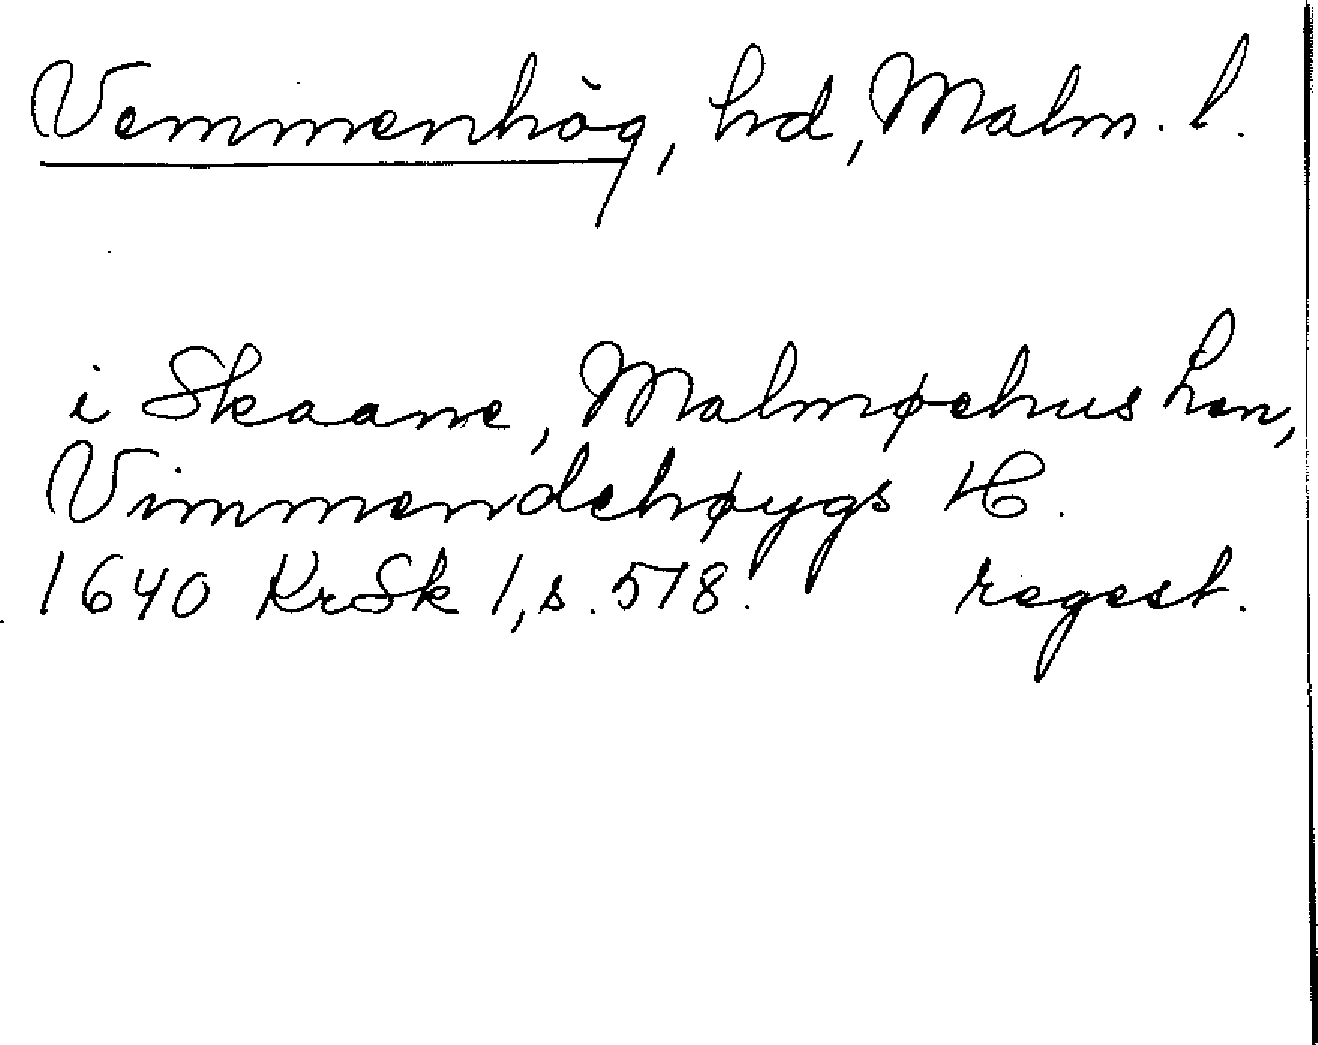 Vemmenhög, hd, Malm. l.
i Skaane, Malmøehus Len,
Vimmendehøygs H.
1640 KrSk 1, s. 518. regest.